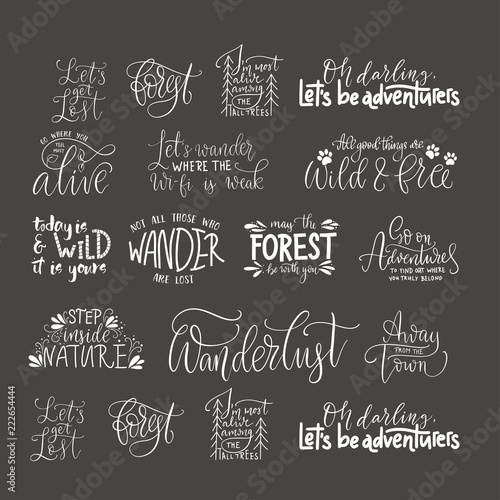 Let's
get
Lost
forest
I'm most
alive
among
THE
TALL TREES
Oh darling,
Let's be adventurers
GO WHERE YOU
FEEL MOST
alive
Let's wander
WHERE THE
wi-fi is weak
All good things are
Wild & free
today is
& WILD
it is yours
NOT ALL THOSE WHO
WANDER
ARE LOST
may the
FOREST
be with you
Go on
Adventures
TO FIND OUT WHERE
YOU TRULY BELONG
STEP
inside
NATURE
Wanderlust
Away
FROM THE
Town
Let's
get
Lost
forest
I'm most
alive
among
THE
TALL TREES
Oh darling,
Let's be adventurers
Adobe Stock | #222654444